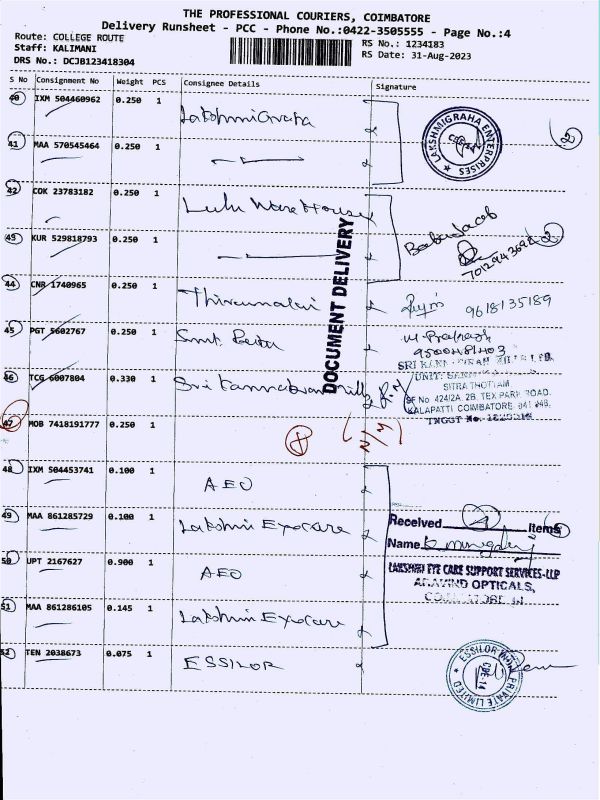 THE PROFESSIONAL COURIERS, COIMBATORE
Delivery Runsheet - PCC - Phone No.:0422-3505555 - Page No.:4
Route: COLLEGE ROUTE
Staff: KALIMANI
DRS No.: DCJB123418304
RS No.: 1234183
RS Date: 31-Aug-2023
S No Consignment No Weight PCS Consignee Details Signature
40 IXM 504460962 0.250 1
LAKSHMIGRAHA ENTERPRISES
2
41 MAA 570545464 0.250 1
42 COK 23783182 0.250 1 Lulu Ware House
43 KUR 529818793 0.250 1
2
DOCUMENT DELIVERY
44 CNR 1740965 0.250 1 Thirumalai 9618135189
45 PGT 5602767 0.250 1
46 TCG 6007804 0.330 1
SITRA THOTTAM
SF No 424/2A, 2B, TEX PARK ROAD,
KALAPATTI COIMBATORE
47 MOB 7418191777 0.250 1 N/M
48 IXM 504453741 0.100 1 AEO
49 MAA 861285729 0.100 1 Lakshmi Eyecare
Received Items
Name
50 UPT 2167627 0.900 1 AEO
LAKSHMI EYE CARE SUPPORT SERVICES-LLP
ARAVIND OPTICALS,
51 MAA 861286105 0.145 1 Lakshmi Eyecare
52 TEN 2038673 0.075 1 ESSILOR
ESSILOR PRIVATE LIMITED
CBE-14